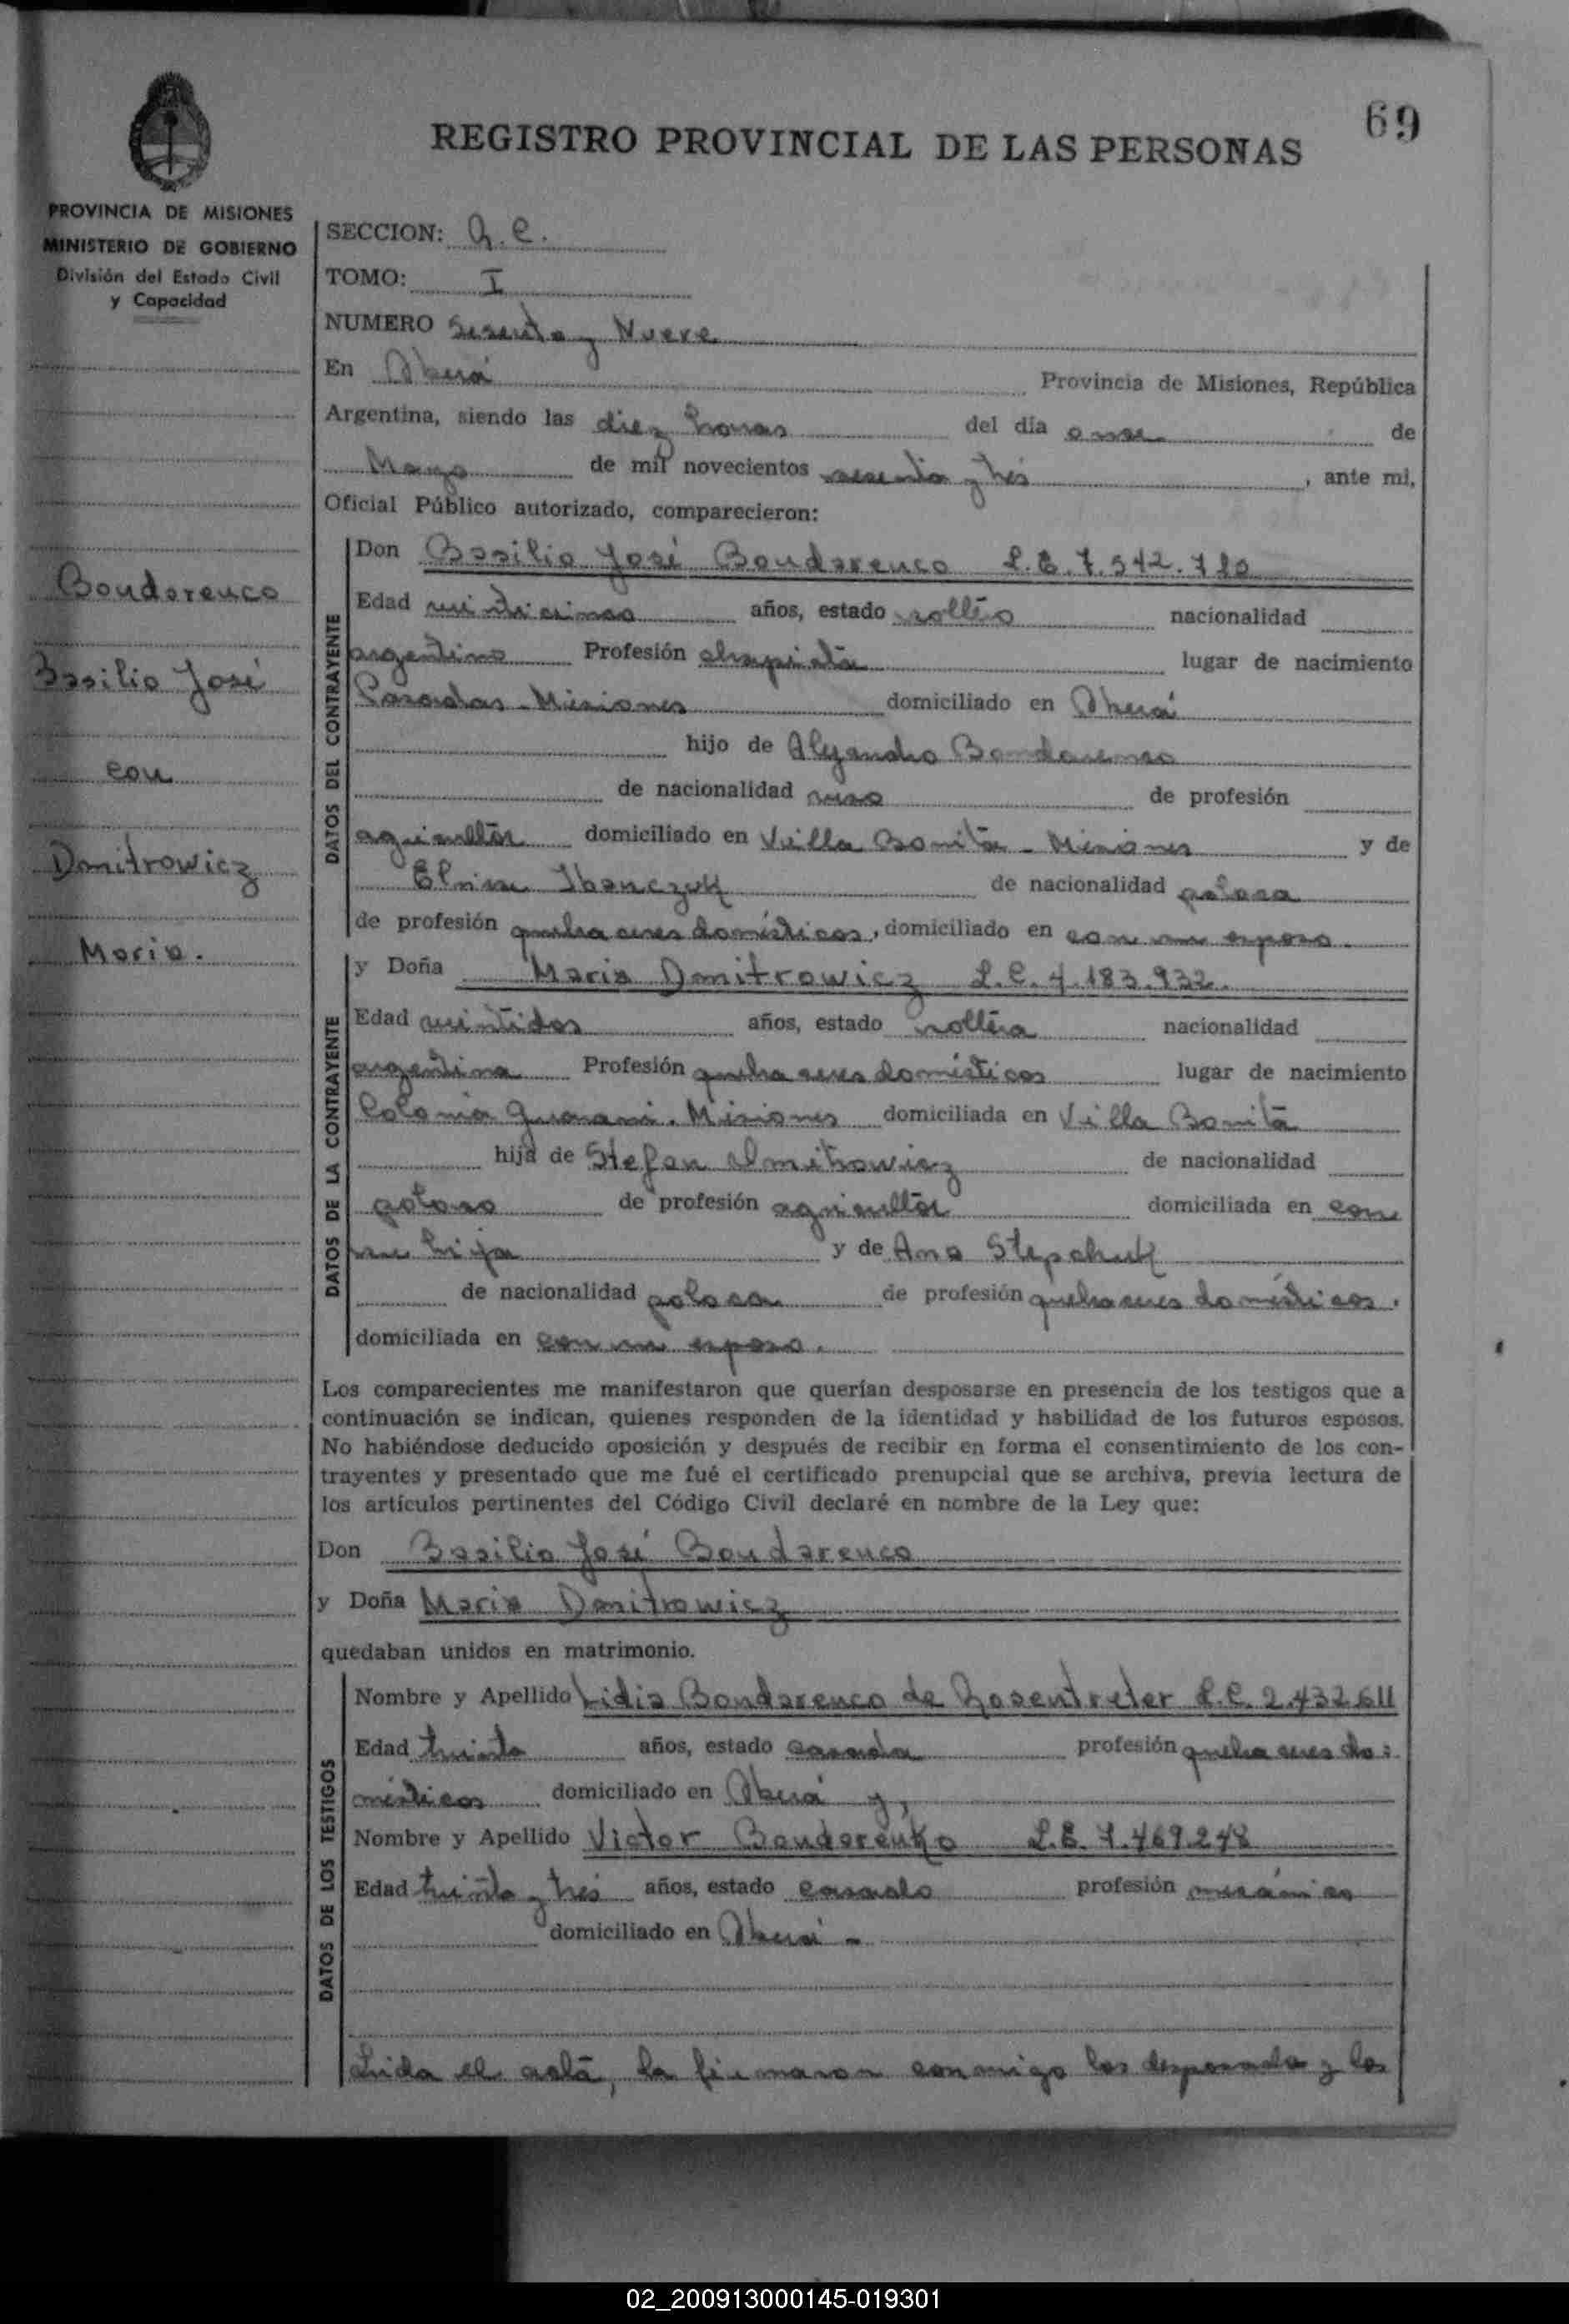 69
REGISTRO PROVINCIAL DE LAS PERSONAS
PROVINCIA DE MISIONES
MINISTERIO DE GOBIERNO
División del Estado Civil
y Capacidad
Bondarenco
Basilio José
con
Dmitrowicz
Maria.
SECCION:
TOMO: I
NUMERO Sesenta y Nueve
En Oberá Provincia de Misiones, República
Argentina, siendo las diez horas del día once de
Mayo de mil novecientos sesenta y tres, ante mi,
Oficial Público autorizado, comparecieron:
DATOS DEL CONTRAYENTE
Don Basilio José Bondarenco L.E. 7.542.780
Edad veinticinco años, estado soltero nacionalidad
argentino Profesión chapista lugar de nacimiento
Posadas - Misiones domiciliado en Oberá
hijo de Alejandro Bondarenco
de nacionalidad ruso de profesión
agricultor domiciliado en Villa Bonita - Misiones y de
de nacionalidad polaca
de profesión quehaceres domésticos, domiciliado en con su esposo.
DATOS DE LA CONTRAYENTE
y Doña Maria Dmitrowicz L.C. 4.183.932.
Edad veintidos años, estado soltera nacionalidad
argentina Profesión quehaceres domésticos lugar de nacimiento
Colonia Guarani. Misiones domiciliada en Villa Bonita
hija de Stefan Dmitrowicz de nacionalidad
polaco de profesión agricultor domiciliada en con
su hija y de Ana Stepchuk
de nacionalidad polaca de profesión quehaceres domésticos.
domiciliada en con su esposo.
Los comparecientes me manifestaron que querían desposarse en presencia de los testigos que a
continuación se indican, quienes responden de la identidad y habilidad de los futuros esposos.
No habiéndose deducido oposición y después de recibir en forma el consentimiento de los con-
trayentes y presentado que me fué el certificado prenupcial que se archiva, previa lectura de
los artículos pertinentes del Código Civil declaré en nombre de la Ley que:
Don Basilio José Bondarenco
y Doña Maria Dmitrowicz
quedaban unidos en matrimonio.
DATOS DE LOS TESTIGOS
Nombre y Apellido Lidia Bondarenco de Rosentreter L.C. 2.432.611
Edad treinta años, estado casada profesión quehaceres do:
mésticos domiciliado en Oberá y,
Nombre y Apellido Victor Bondarenko L.E. 7.469.248
Edad treinta y tres años, estado casado profesión mecánico
domiciliado en Oberá -
Leída el acta, la firmaron conmigo los desposados y los
02_200913000145-019301